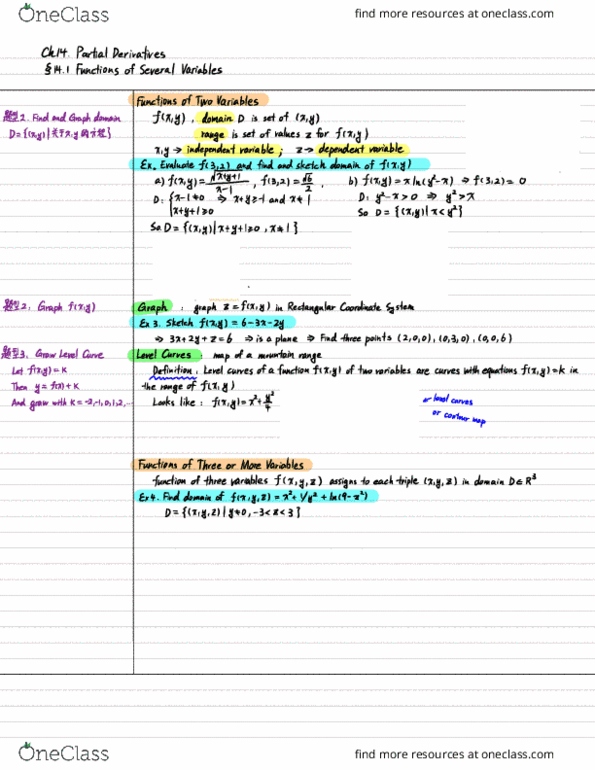 OneClass
find more resources at oneclass.com
Ch14. Partial Derivatives
§14.1 Functions of Several Variables
Functions of Two Variables
题型2. Find and Graph domain
D={(x,y)|关于x,y的方程}
f(x,y), domain D is set of (x,y)
range is set of values z for f(x,y)
x,y → independent variable; z → dependent variable
Ex. Evaluate f(3,2) and find and sketch domain of f(x,y)
a) f(x,y) = √(x+y+1)/(x-1), f(3,2) = √6/2
D: {x-1≠0 ⇒ x+y≥-1 and x≠1
x+y+1≥0
So D={(x,y)|x+y+1≥0, x≠1}
b) f(x,y) = x ln(y²-x) ⇒ f(3,2) = 0
D: y²-x>0 ⇒ y²>x
So D={(x,y)|x<y²}
题型2: Graph f(x,y)
Graph: graph z=f(x,y) in Rectangular Coordinate System
Ex 3. Sketch f(x,y) = 6-3x-2y
⇒ 3x+2y+z=6 ⇒ is a plane ⇒ Find three points (2,0,0), (0,3,0), (0,0,6)
题型3. Graw Level Curve
Let f(x,y) = K
Then y = f(x) + K
And graw with K=-2,-1,0,1,2,...
Level Curves: map of a mountain range
Definition: Level curves of a function f(x,y) of two variables are curves with equations f(x,y)=k in
the range of f(x,y)
Looks like: f(x,y) = x²+y²/4
level curves
or contour map
Functions of Three or More Variables
function of three variables f(x,y,z) assigns to each triple (x,y,z) in domain D∈R³
Ex4. Find domain of f(x,y,z) = x²+1/y²+ln(9-z²)
D={(x,y,z)|y≠0,-3<z<3}
OneClass
find more resources at oneclass.com